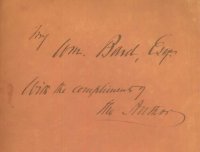 Wm. Bard, Esq.
With the compliments of
the Author